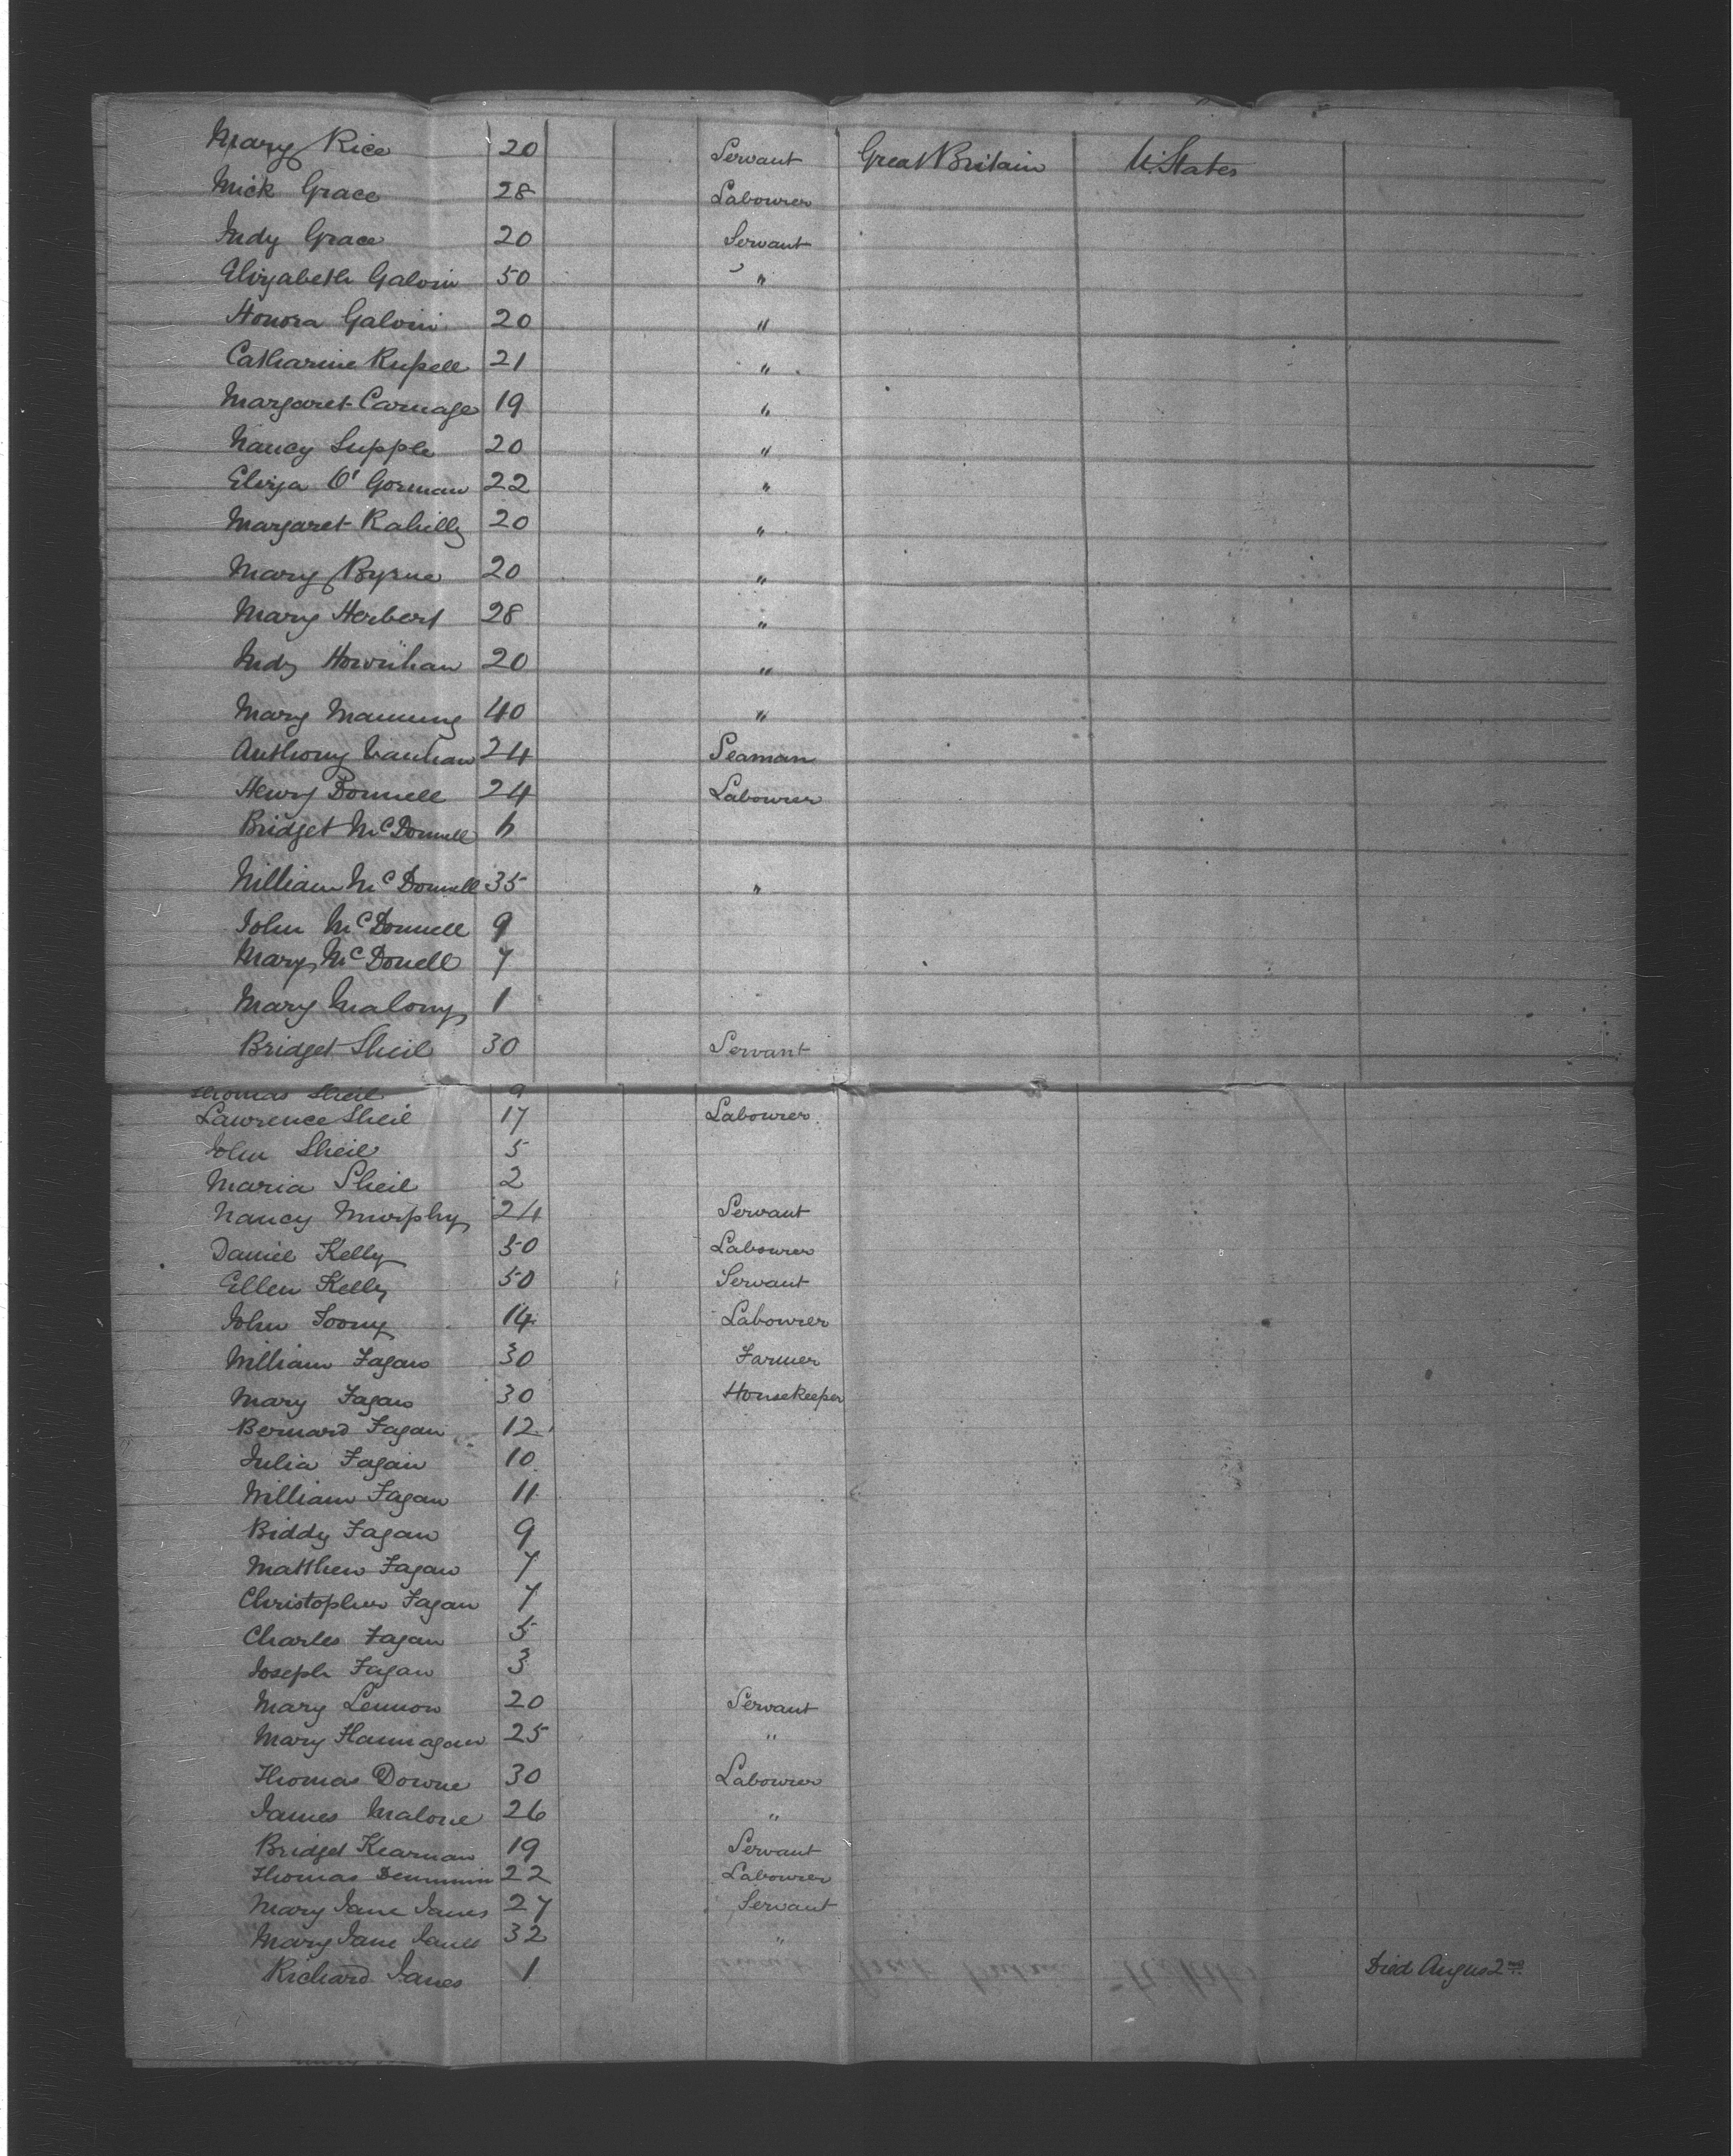 Mary Rice 20 Servant Great Britain U. States
Mick Grace 28 Labourer
Judy Grace 20 Servant
Elizabeth Galvin 50 "
Honora Galvin 20 "
Catharine Russell 21 "
Margaret Carnage 19 "
Nancy Supple 20 "
Eliza O'Gorman 22 "
Margaret Rahilly 20 "
Mary Byrne 20 "
Mary Herbert 28 "
Judy Hourihan 20 "
Mary Manning 40 "
Anthony 24 Seaman
Henry Donnell 24 Labourer
Bridget McDonnell 6
William McDonnell 35 "
John McDonnell 9
Mary McDonell 7
Mary Malony 1
Bridget Sheil 30 Servant
Thomas Sheil 9
Lawrence Sheil 17 Labourer
John Sheil 5
Maria Sheil 2
Nancy Murphy 24 Servant
Daniel Kelly 50 Labourer
Ellen Kelly 50 Servant
John Toomy 14 Labourer
William Fagan 30 Farmer
Mary Fagan 30 Housekeeper
Bernard Fagan 12
Julia Fagan 10
William Fagan 11
Biddy Fagan 9
Matthew Fagan 7
Christopher Fagan 7
Charles Fagan 5
Joseph Fagan 3
Mary Lennon 20 Servant
Mary Hannagan 25 "
Thomas Downe 30 Labourer
James Malone 26 "
Bridget Kearnan 19 Servant
Thomas 22 Labourer
Mary Jane Janes 27 Servant
Mary Jane Janes 32 "
Richard Janes 1 Died Augus 2nd